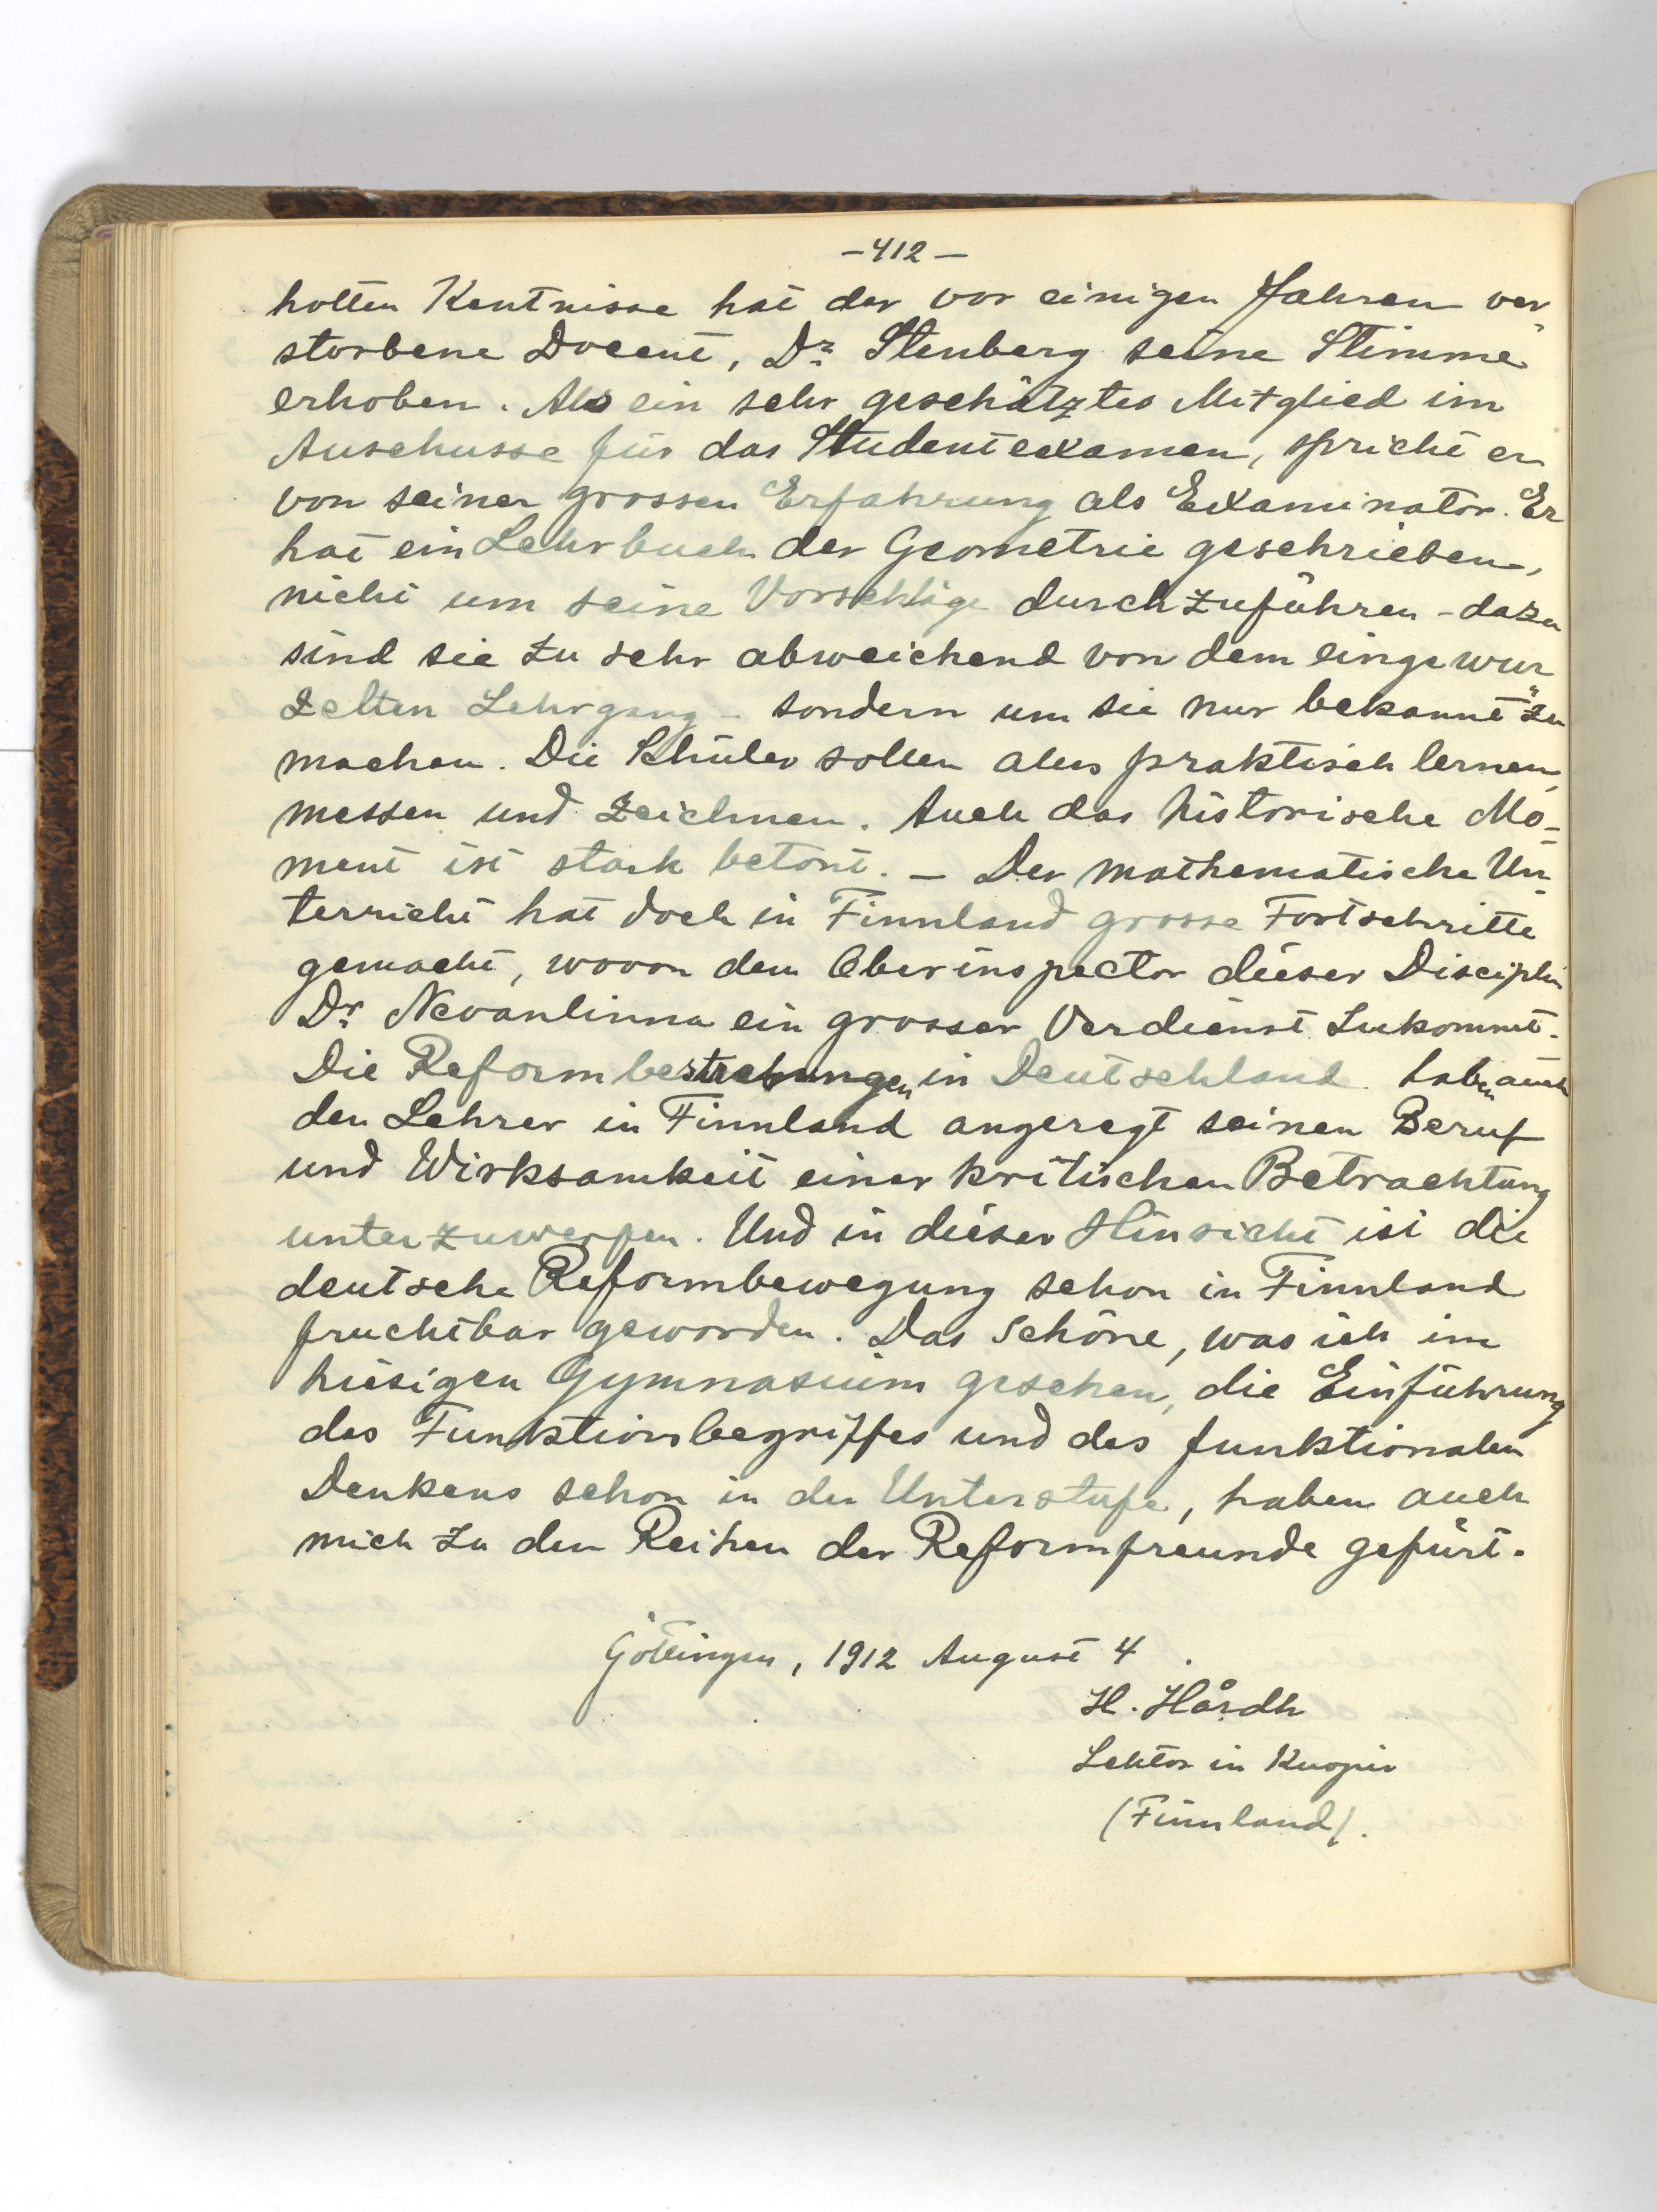 -412-
holten Kentnisse hat der vor einigen Jahren ver-
storbene Docent, Dr. Stenberg seine Stimme
erhoben. Als ein sehr geschätztes Mitglied im
Auschusse für das Studentexamen, spricht er
von seiner grossen Erfahrung als Examinator. Er
hat ein Lehrbuch der Geometrie geschrieben,
nicht um seine Vorschläge durchzuführen - dazu
sind sie zu sehr abweichend von dem eingewur-
zelten Lehrgang - sondern um sie nur bekannt zu
machen. Die Schüler sollen alles praktisch lernen,
messen und zeichnen. Auch das historische Mo-
ment ist stark betont. - Der mathematische Un-
terricht hat doch in Finnland grosse Fortschritte
gemacht, wovon dem Oberinspector dieser Disciplin
Dr. Nevanlinna ein grosser Verdienst zukommt.
Die Reformbestrebungen in Deutschland haben auch
den Lehrer in Finnland angeregt seinen Beruf
und Wirksamkeit einer kritischen Betrachtung
unterzuwerfen. Und in dieser Hinsicht ist die
deutsche Reformbewegung schon in Finnland
fruchtbar geworden. Das Schöne, was ich im
hiesigen Gymnasium gesehen, die Einführung
des Funktionsbegriffes und des funktionalen
Denkens schon in der Unterstufe, haben auch
mich zu den Reihen der Reformfreunde gefürt.
Göttingen, 1912 August 4.
H. Hårdh
Lektor in Kuopio
(Finnland).